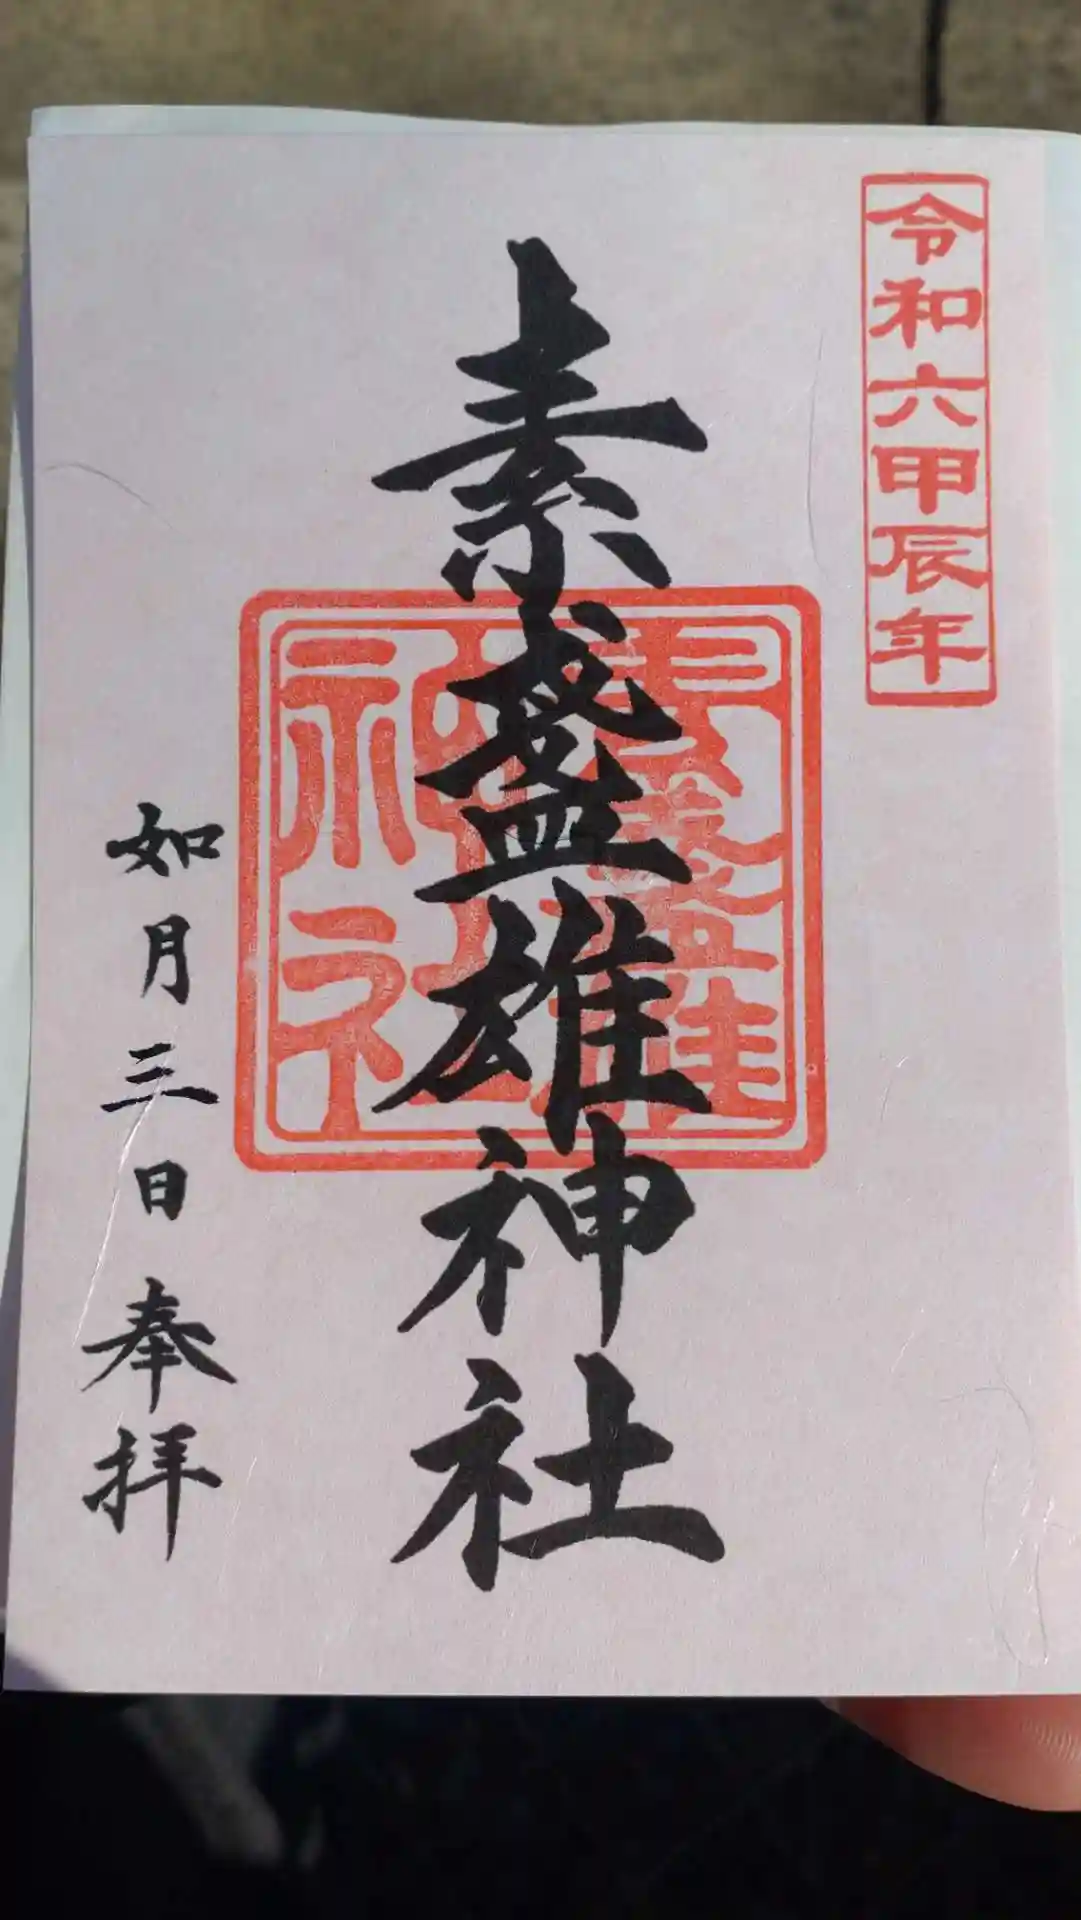 令和六甲辰年
素盞雄神社
素盞雄
神社
如月三日奉拝